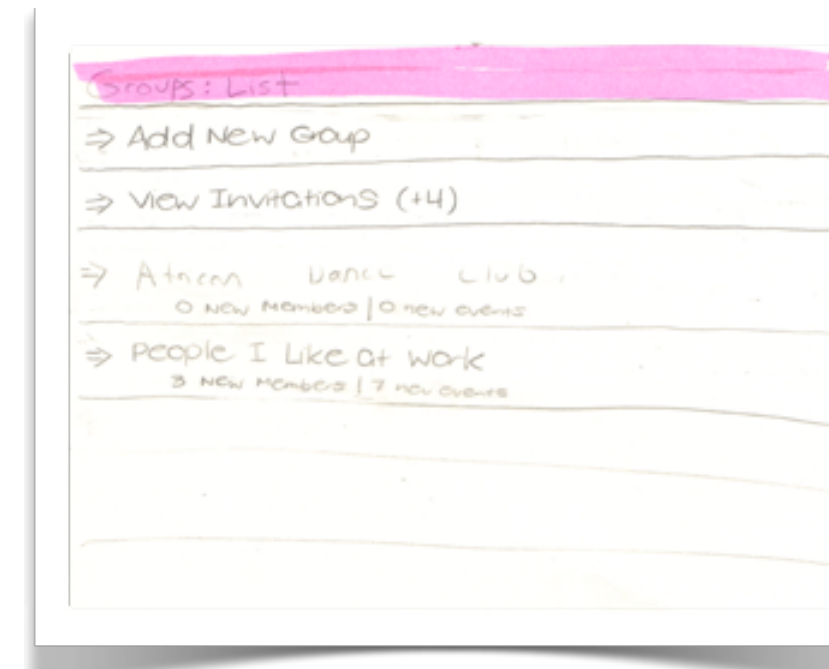 Groups: List
⇒ Add New Group
⇒ View Invitations (+4)
⇒ African Dance Club
0 New Members | 0 new events
⇒ People I Like at work
3 New Members | 7 new events